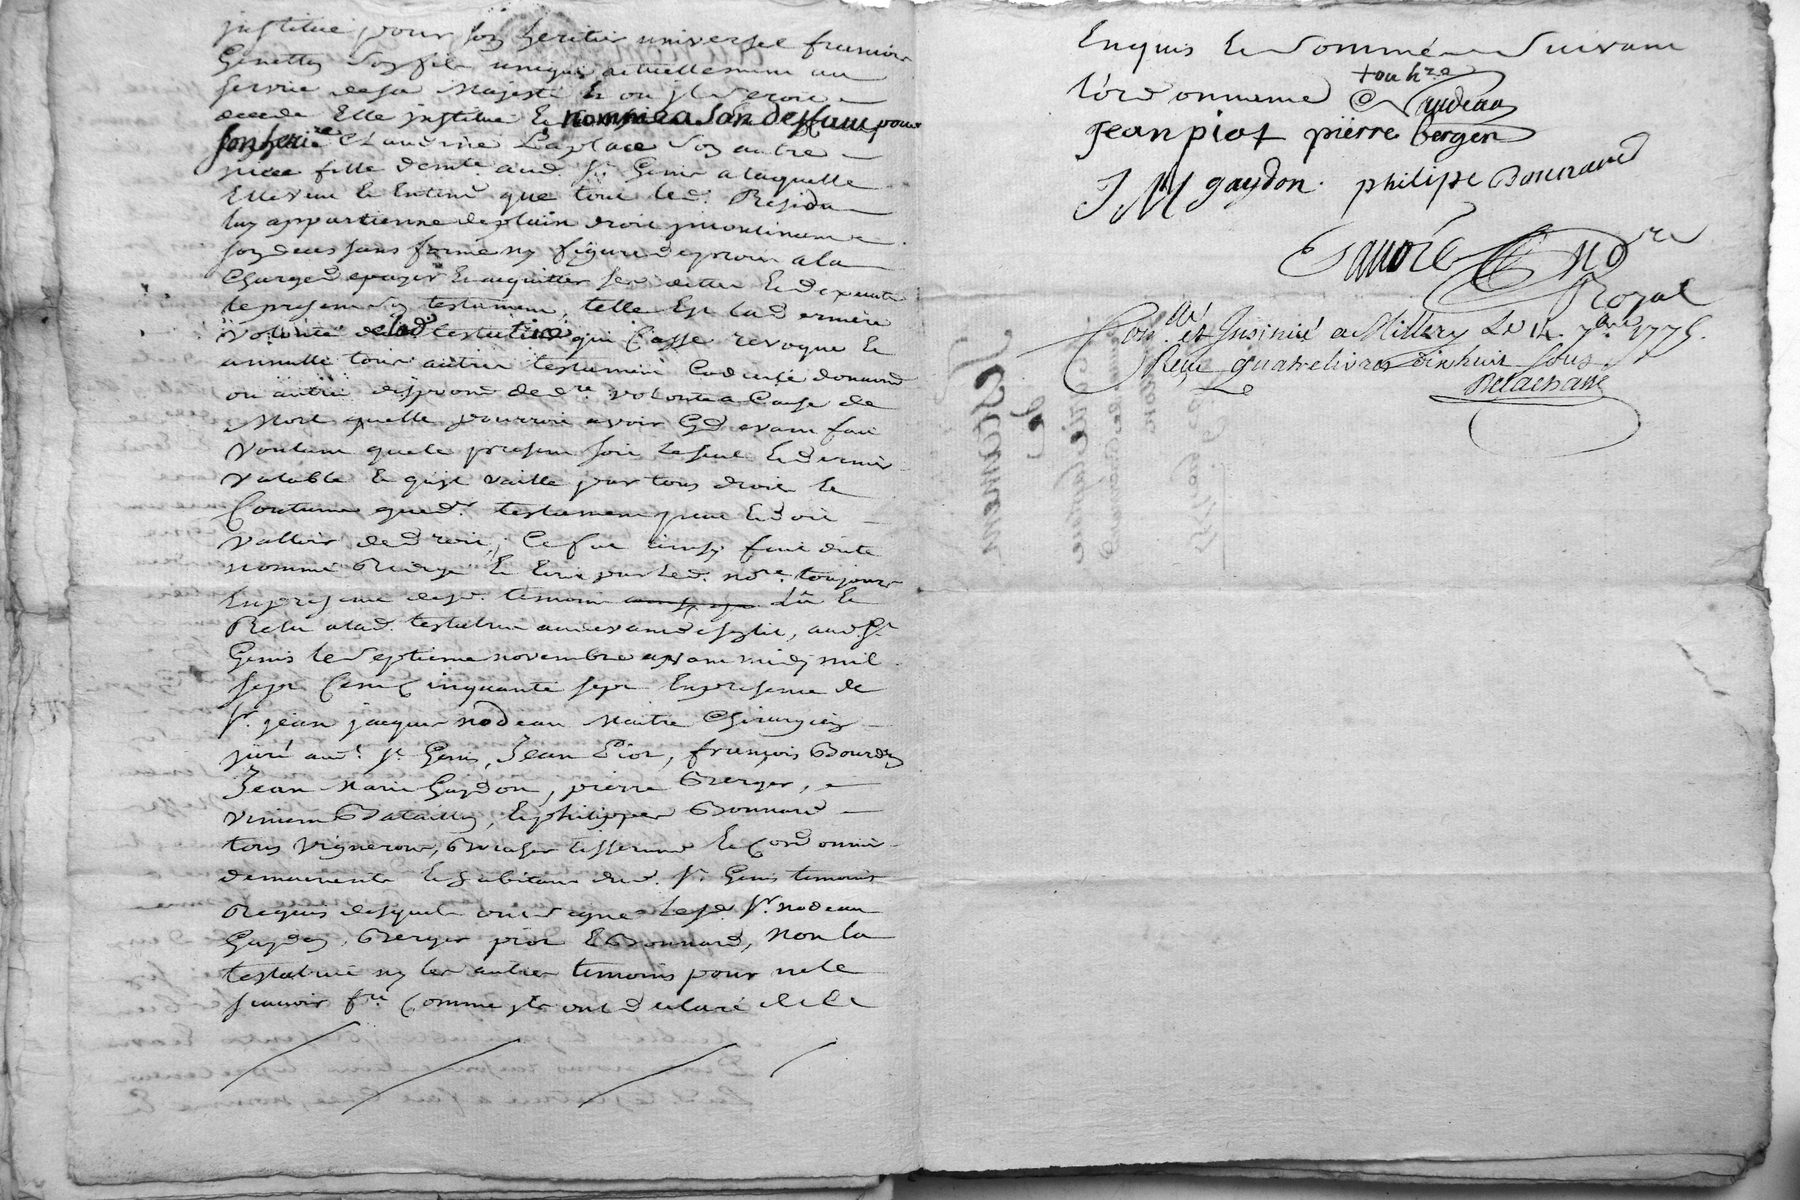 institue pour son heritier universel francois
Genetty son fils unique actuellement au
service de sa Majesté Et ou il seroit
decedé Elle institue Et nomme a son deffaut pour
son heritiere Claudine Laplace son autre
niece fille demte aud. St. Genis a laquelle
Elle veut Et Entend que tout led. Residu
luy appartienne de plain droit incontinent
son deces sans forme ny figure de procès a la
Charge de payer Et acquitter ses dettes Et d'executer
le present son testament, telle Est la derniere
volonté de lad. testatrice qui Casse revoque Et
annulle tous autres testamens Codicile donnations
ou autres disposons de dre. volonté a Cause de
Mort quelle pourroit avoir Cy devant fait
voulant que le present soit le seul Et dernier
valable Et qu'il vaille par tous droits Et
Coutumes que dr. testament peut Et doit
valloir de droit, Ce fut ainsy fait dicté
nommé Rédigé Et Ecrit par led. nore. toujours
En presence desd. temoins lû Et
Relu a lad. testatrice aud. St.
Genis le septieme novembre avant midy mil
sept Cent Cinquante sept En presence de
Sr. jean jacques nodeau Maitre Chirurgien
juré aud. St. Genis, Jean Piot, françois Bourdy
Jean Marie Gaydon, pierre Berger,
vincent Batailly, Et philippe Bonnard
tous vignerons, tisserand Et Cordonnier
demeurants Et habitans dud. St. Genis temoins
Requis desquels ont signé lesd. Sr. nodeau
Gaydon, Berger piot Et Bonnard, non la
testatrice ny les autres temoins pour ne le
scavoir fre. Comme ils ont declaré de Ce
Enquis Et Sommé Suivant
l'ordonnance
Jean piot pierre berger
J M gaydon. philipe Bonnard
Nore
Royal
Conllé. et Insinué a Millery Le 14. 7bre 1775.
Reçu quatre livres dix huit sols
Delachasse
Testament
de